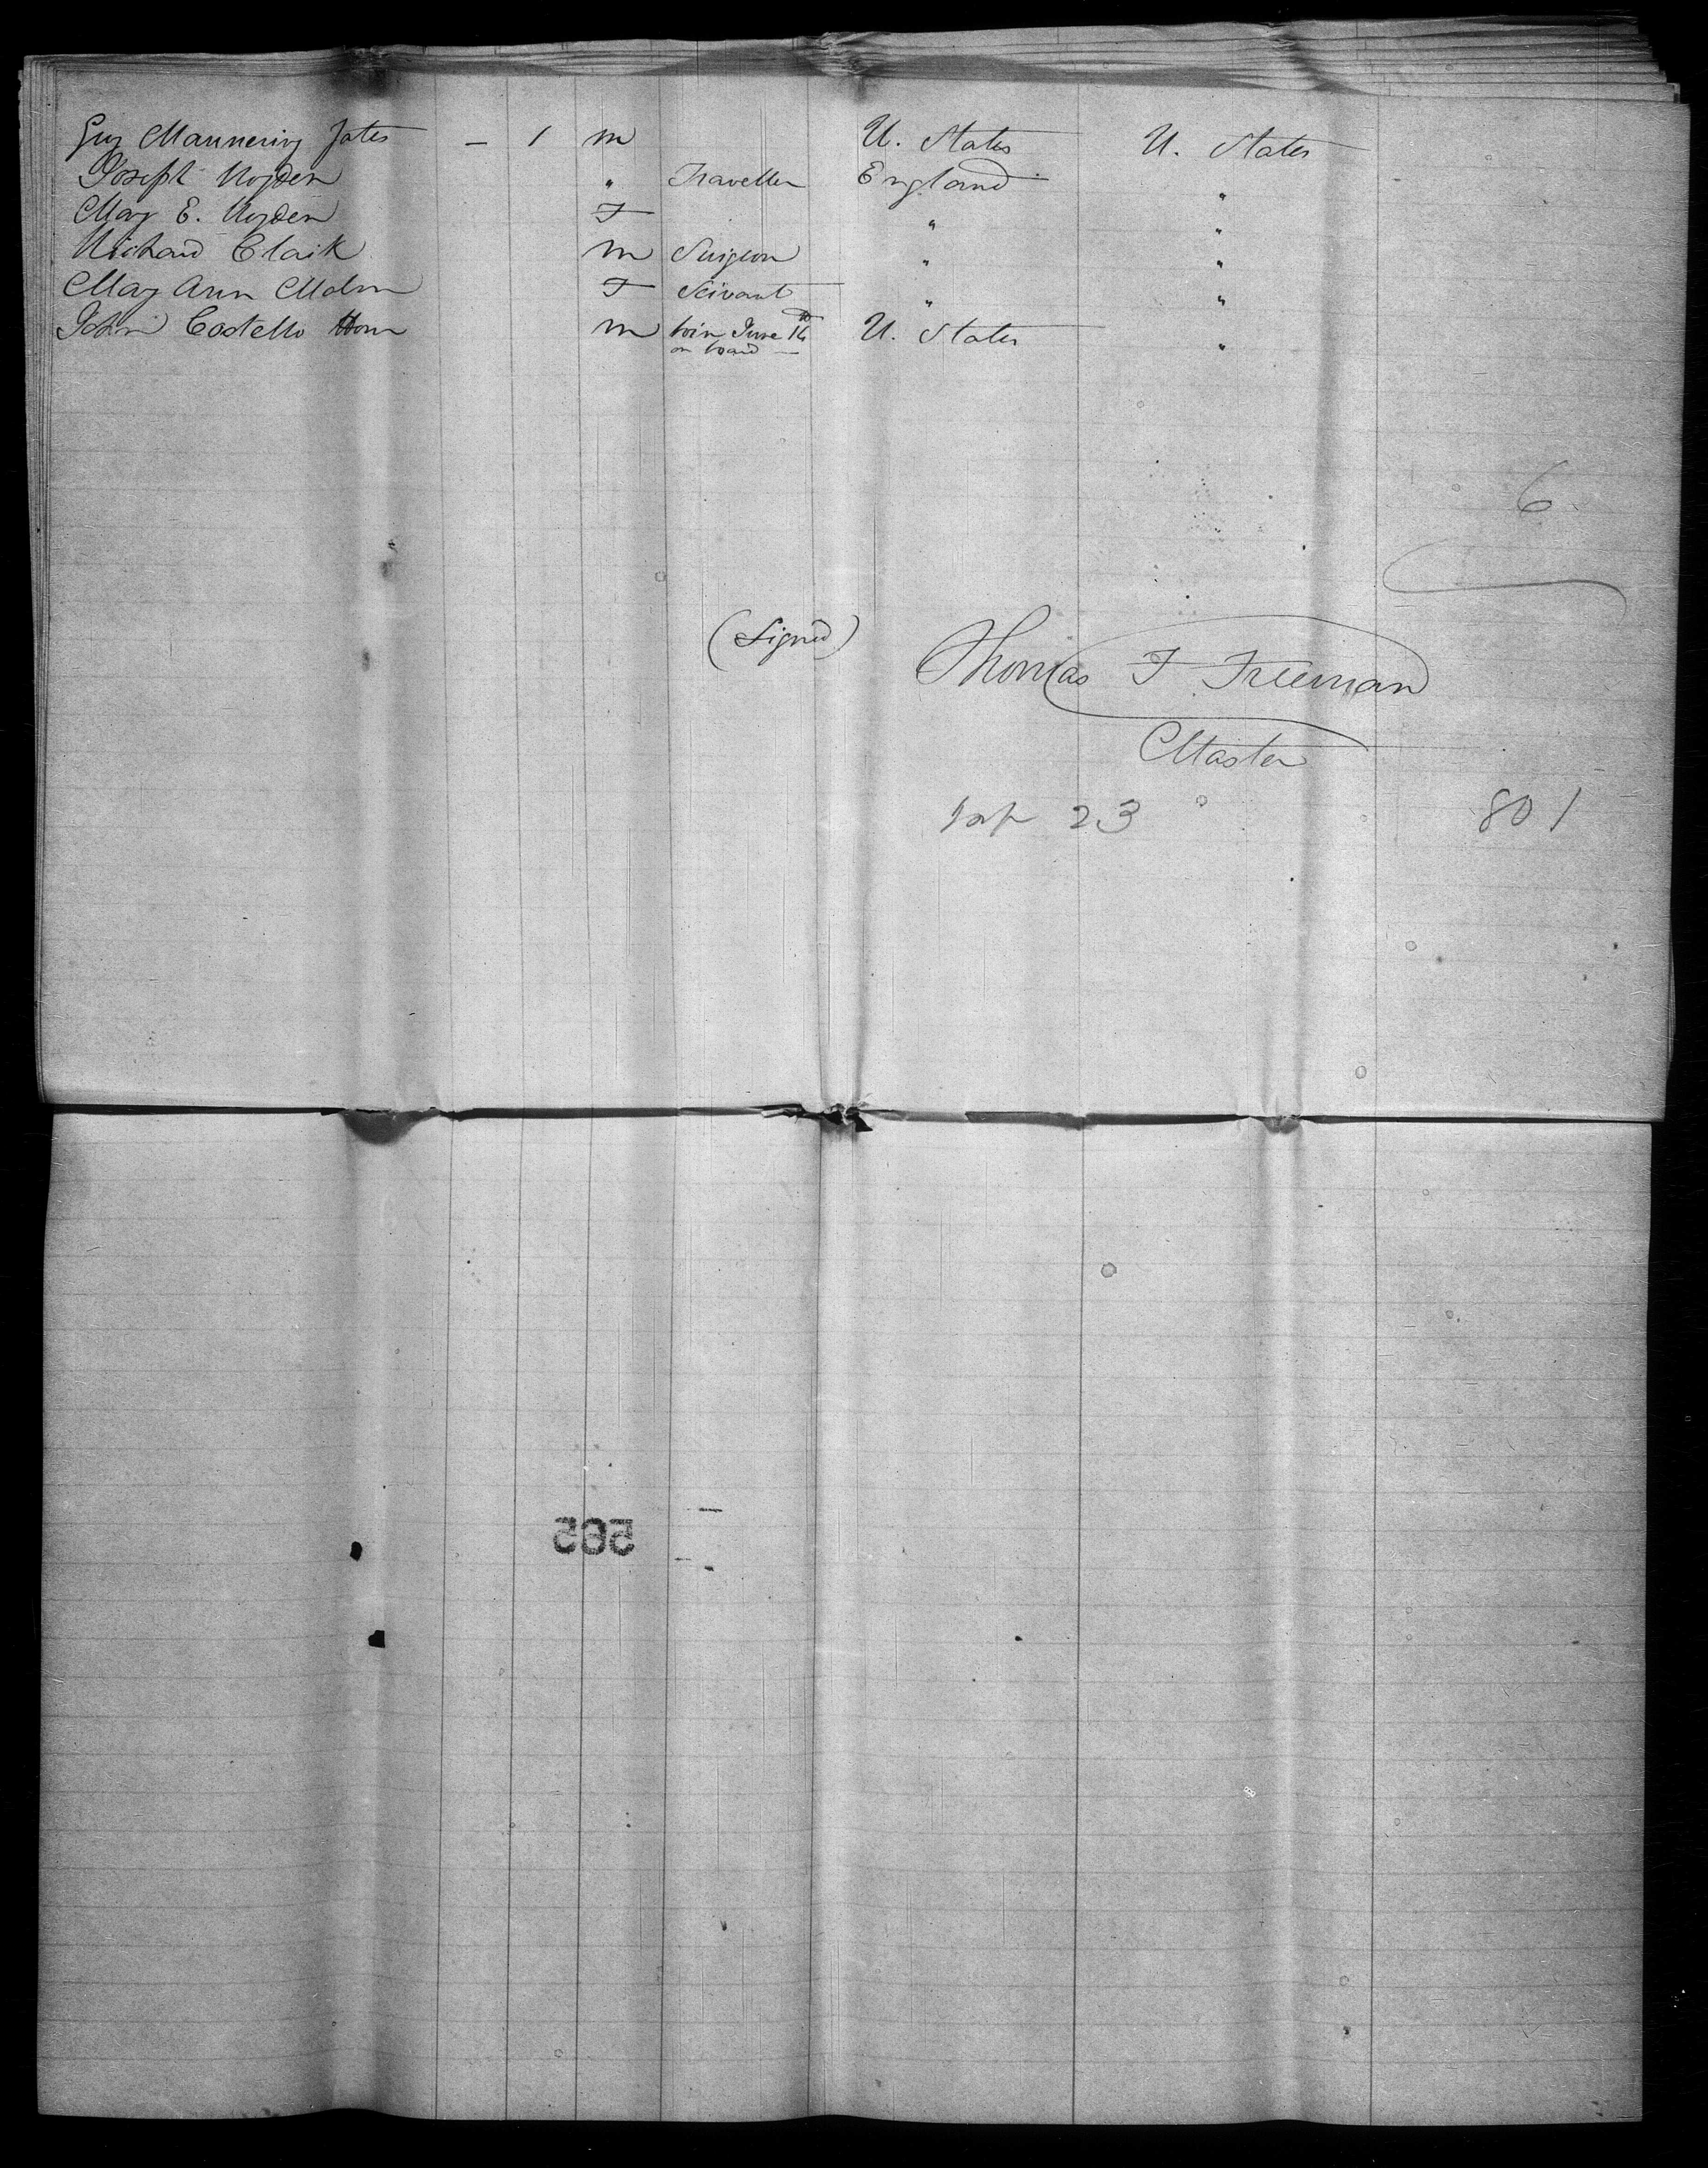 Guy Mannering Yates — 1 m U. States U. States
Joseph Hogden " Traveller England "
Mary E. Hogden F " "
Richard Clark m Surgeon " "
Mary Ann F Servant " "
John Costello m born June 16th on board — U. States "
6
(Signed) Thomas F Freeman
Master
23 801
565